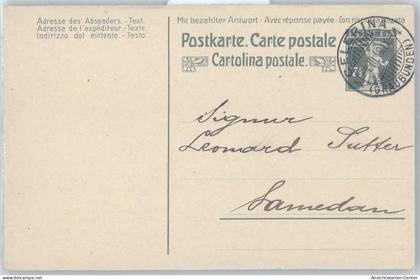 Adresse des Absenders.-Text.
Adresse de l'expéditeur.-Texte.
Indirizzo del mittente.-Testo.
Mit bezahlter Antwort · Avec réponse payée · Con risposta pagata
Postkarte. Carte postale
Cartolina postale.
CELERINA
(GRAUBÜNDEN)
Signur
Leonard Sutter
Samedan
Ansichtskarten-Center